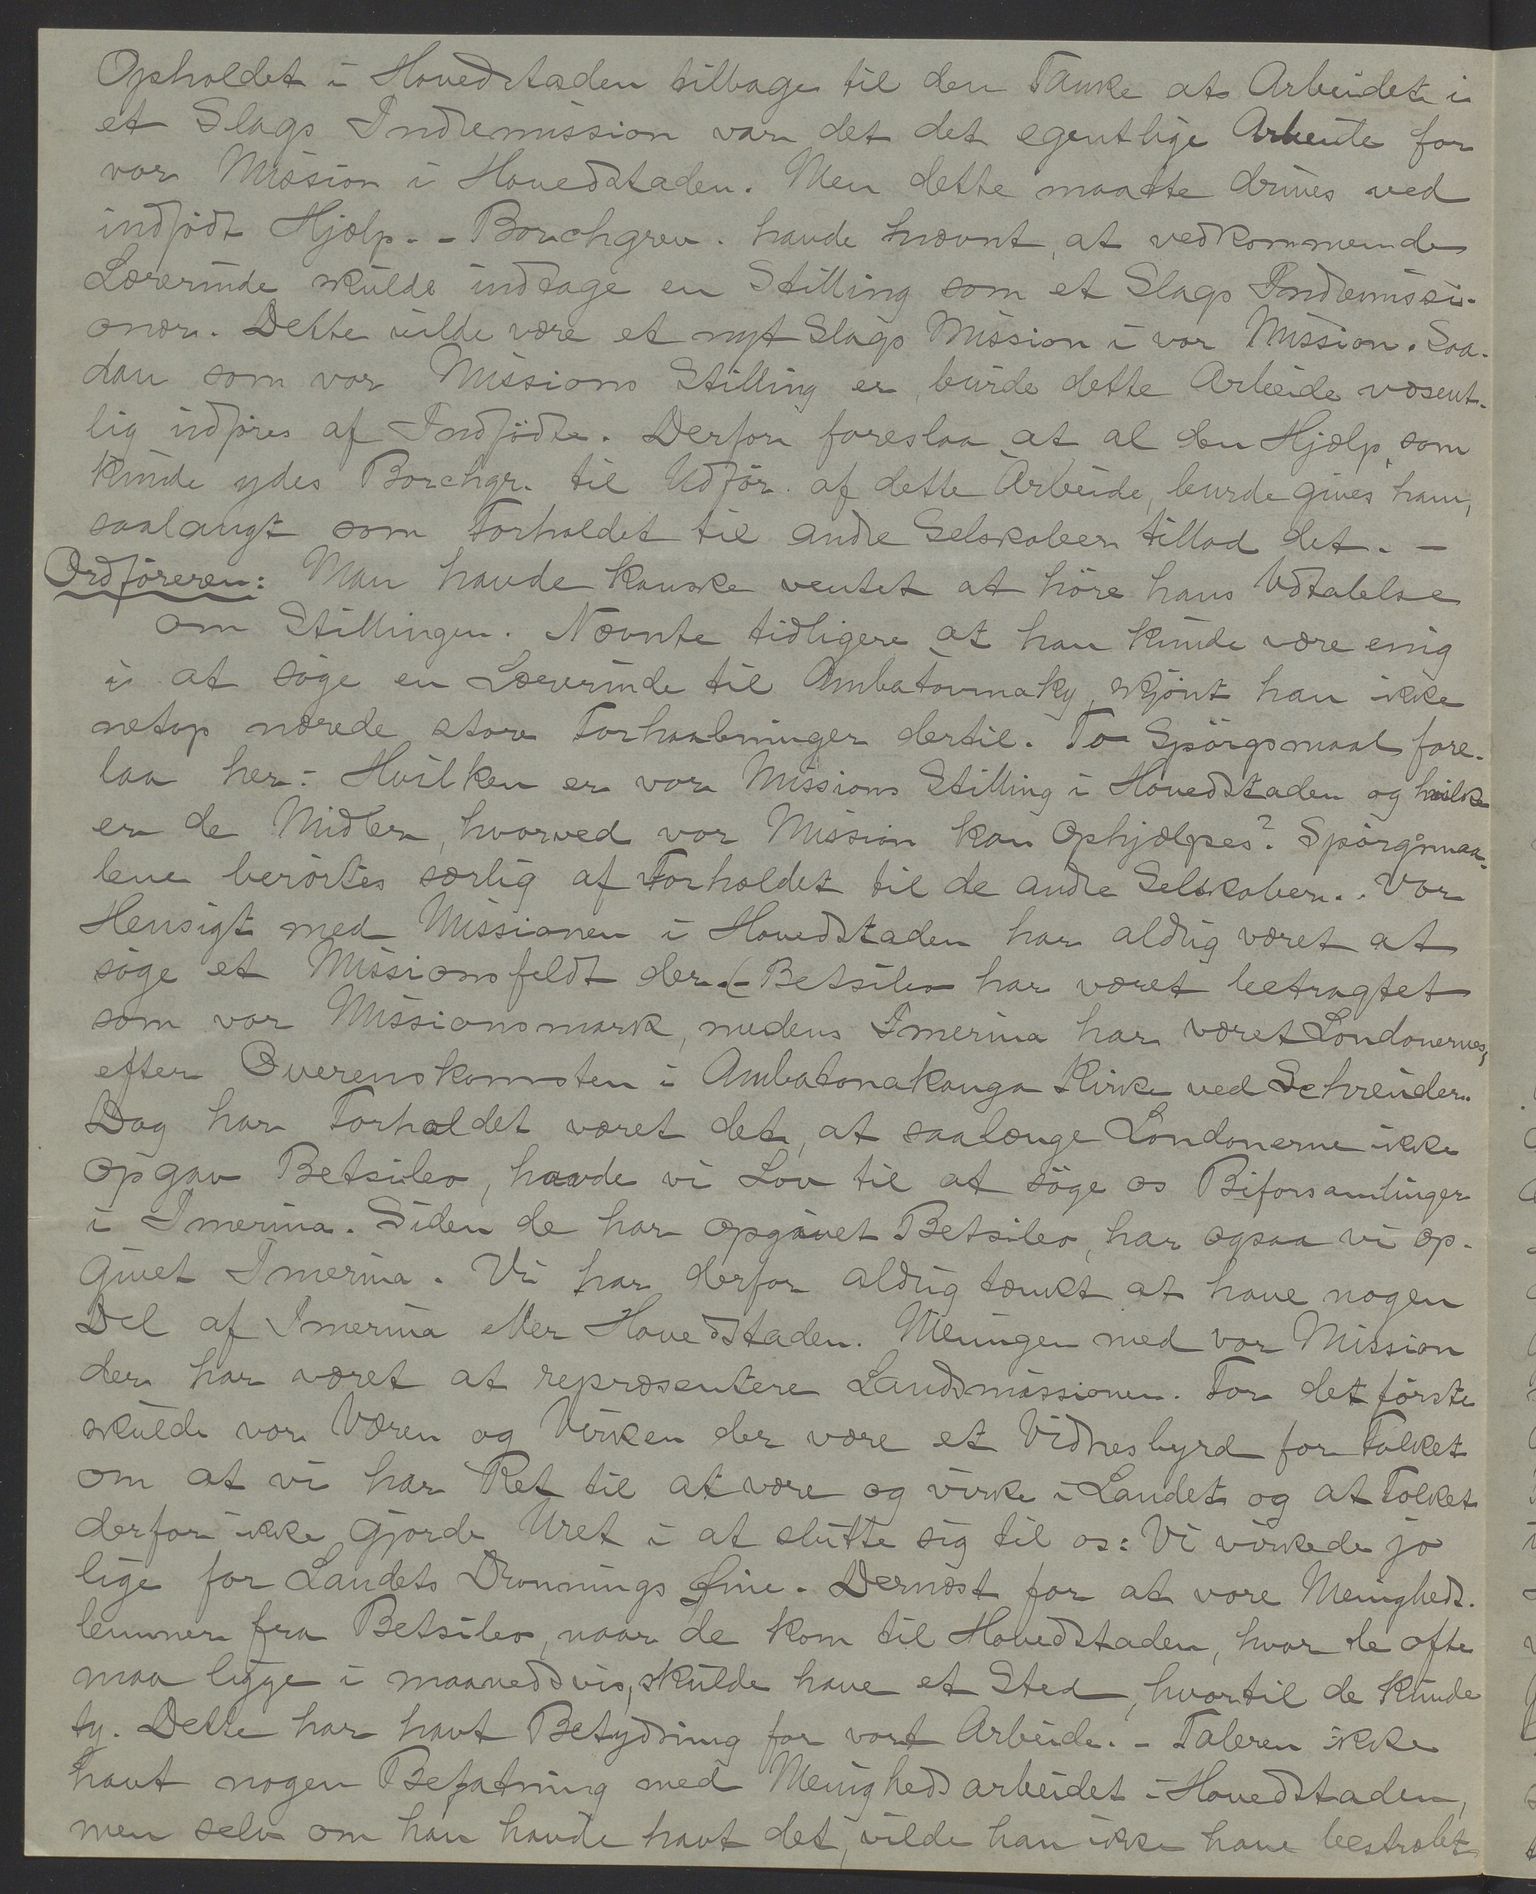 Opholdet i Hovedstaden tilbage til den Tanke at Arbeidet i
et Slags Indremission var det det egentlige Arbeide for
vor Mission i Hovedstaden. Men dette maatte drives ved
indfødt Hjælp. - Borchgrev. havde nævnt, at vedkommende
Lærerinde skulde indtage en Stilling som et Slags Indremissi-
onær. Dette vilde være et nyt Slags Mission i vor Mission. Saa-
dan som vor Missions Stilling er, burde dette Arbeide væsent-
lig udføres af Indfødte. Derfor foreslaa at al den Hjælp, som
kunde ydes Borchgr. til Udfør. af dette Arbeide, burde gives ham,
saalangt som Forholdet til andre Selskaber tillod det. -
Ordføreren: Man havde kanske ventet at høre hans Udtalelse
om Stillingen. Nævnte tidligere at han kunde være enig
i at søge en Lærerinde til Ambatovinaky, skjønt han ikke
netop nærede store Forhaabninger dertil. To Spørgsmaal fore-
laa her: Hvilken er vor Missions Stilling i Hovedstaden og hvilke
er de Midler, hvorved vor Mission kan ophjælpes? Spørgsmaa-
lene berørtes særlig af Forholdet til de andre Selskaber. Vor
Hensigt med Missionen i Hovedstaden har aldrig været at
søge et Missionsfeldt der. (- Betsileo har været betragtet
som vor Missionsmark, medens Imerina har været Londonernes,
efter Overenskomsten i Ambatonakanga Kirke ved Schreuder.
Dog har Forholdet været det, at saalænge Londonerne ikke
opgav Betsileo, havde vi Lov til at søge os Biforsamlinger
i Imerina. Siden de har opgivet Betsileo, har ogsaa vi op-
givet Imerina. Vi har derfor aldrig tænkt at have nogen
Del af Imerina eller Hovedstaden. Meningen med vor Mission
der har været at repræsentere Landsmissionen. For det første
skulde vor Væren og Virken der være et Vidnesbyrd for Folket
om at vi har Ret til at være og virke i Landet og at Folket
derfor ikke gjorde Uret i at slutte sig til os: Vi virkede jo
lige for Landets Dronnings Øine. Dernæst for at vore Menigheds-
lemmer fra Betsileo, naar de kom til Hovedstaden, hvor de ofte
maa ligge i maanedsvis, skulde have et Sted, hvortil de kunde
ty. Dette har havt Betydning for vort Arbeide. - Taleren ikke
havt nogen Befatning med Menighedsarbeidet i Hovedstaden,
men selv om han havde havt det, vilde han ikke have bestræbt